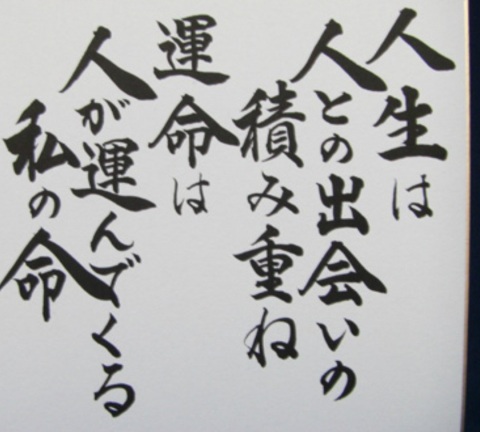 人生は
人との出会いの
積み重ね
運命は
人が運んでくる
私の命